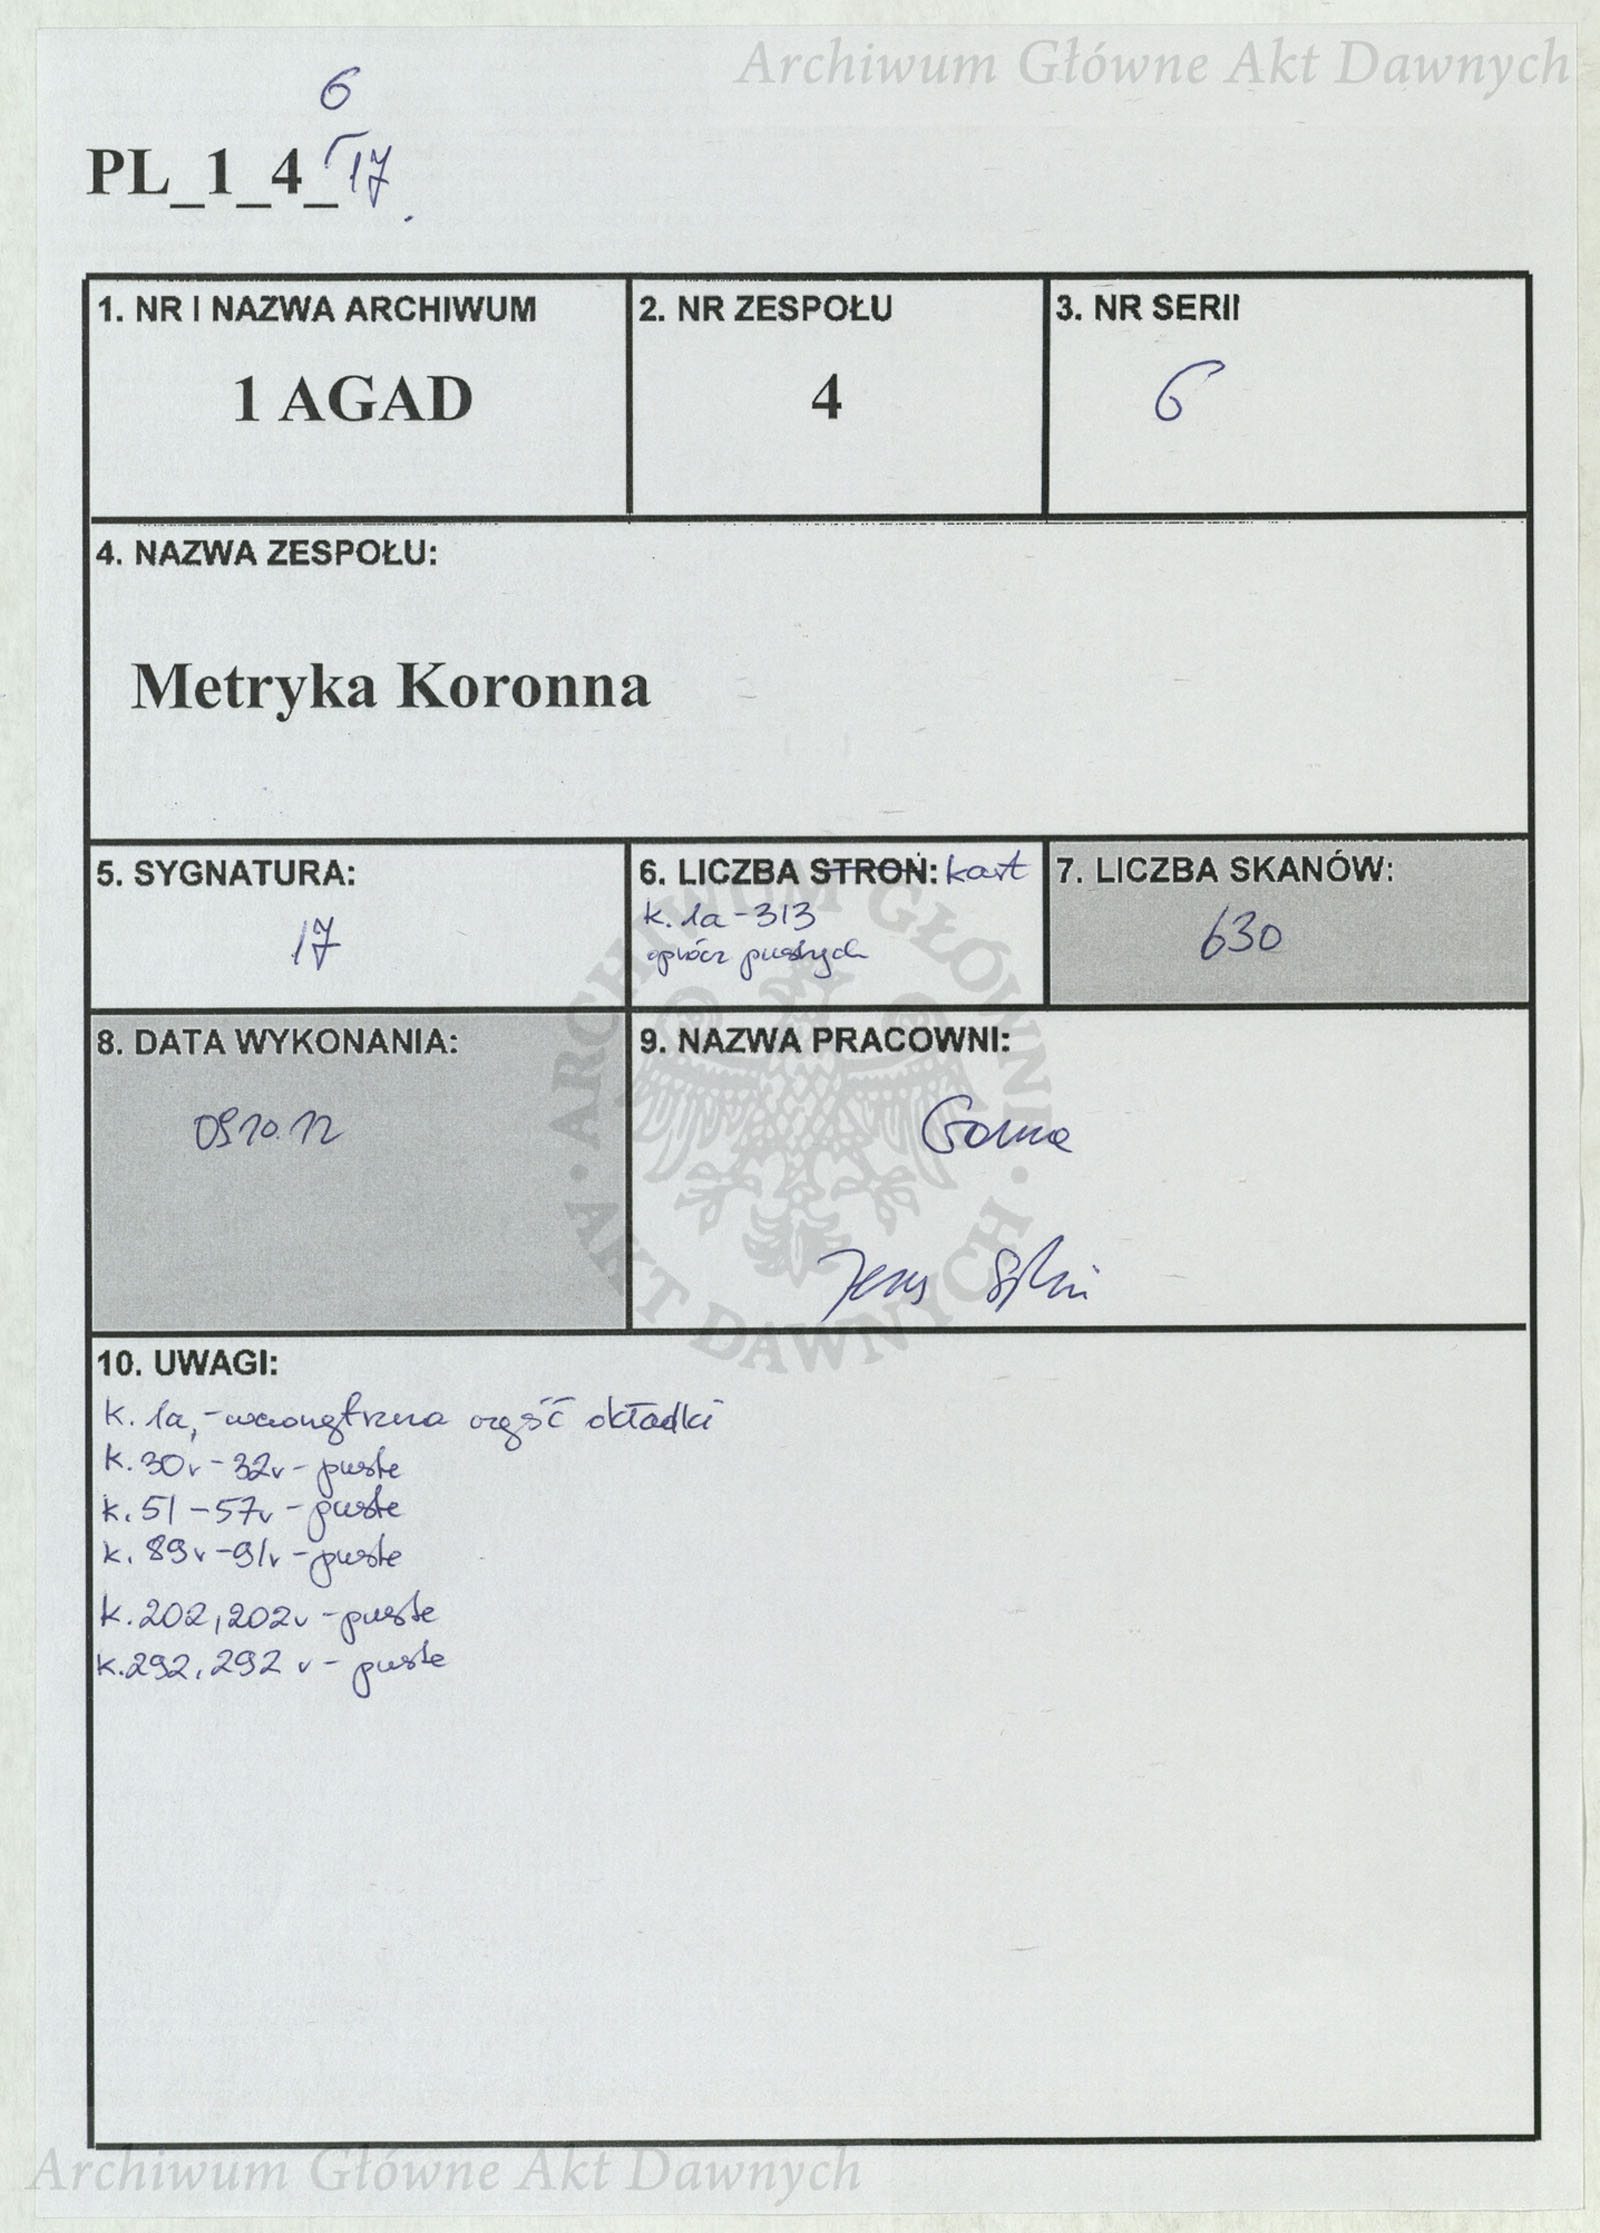 Archiwum Główne Akt Dawnych
6
PL_1_4_17
1. NR I NAZWA ARCHIWUM
1 AGAD
2. NR ZESPOŁU
4
3. NR SERII
6
4. NAZWA ZESPOŁU:
Metryka Koronna
5. SYGNATURA:
17
6. LICZBA STRON: kart
k. 1a-313
oprócz pustych
7. LICZBA SKANÓW:
630
8. DATA WYKONANIA:
09.10.12
9. NAZWA PRACOWNI:
10. UWAGI:
k. 1a,-wewnętrzna część okładki
k. 30v-32v-puste
k. 51-57v-puste
k. 89v-91v-puste
k. 202, 202v-puste
k. 292, 292v-puste
ARCHIWUM GŁÓWNE · AKT DAWNYCH ·
Archiwum Główne Akt Dawnych